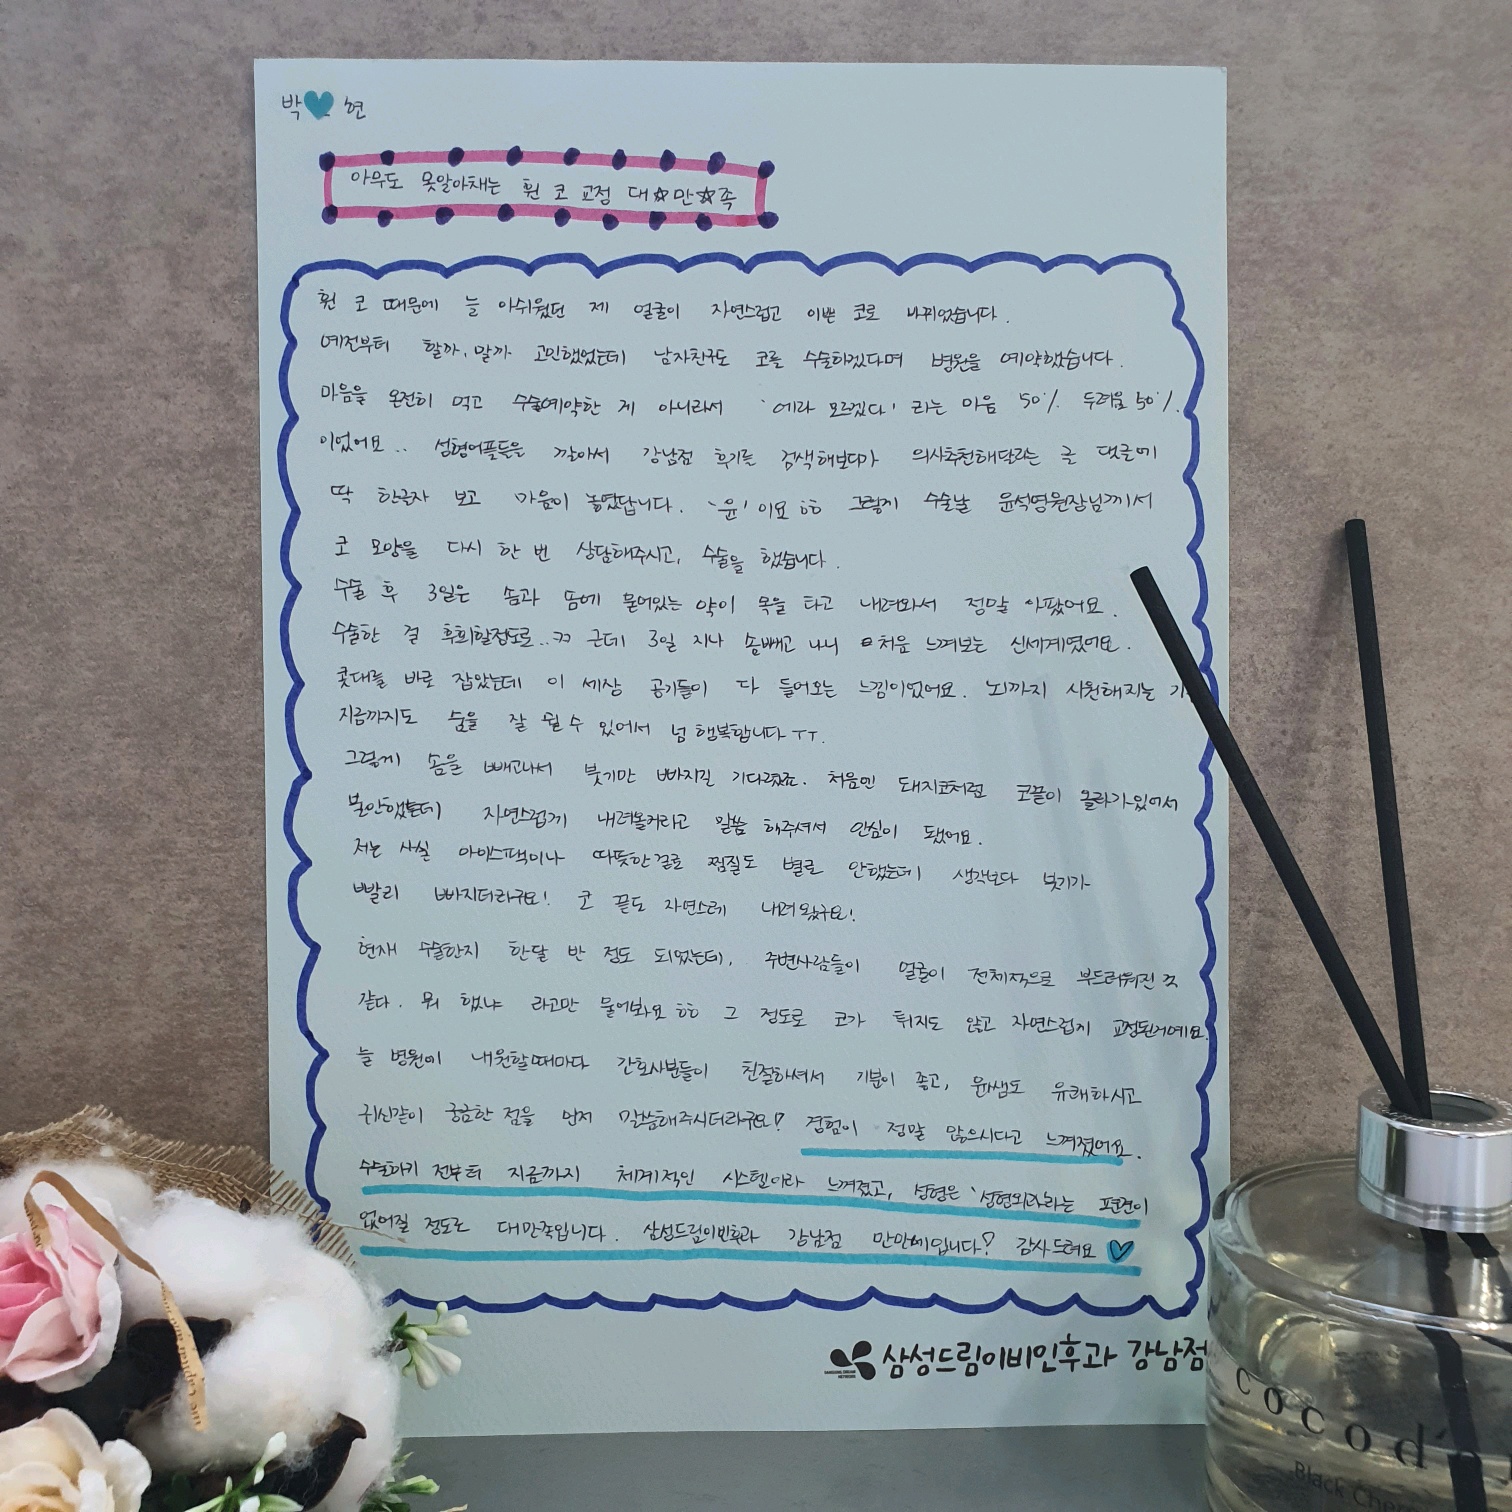 박♥현
아무도 못알아채는 휜 코 교정 대☆만☆족
휜 코 때문에 늘 아쉬웠던 제 얼굴이 자연스럽고 이쁜 코로 바뀌었습니다.
예전부터 할까, 말까 고민했었는데 남자친구도 코를 수술하겠다며 병원을 예약했습니다.
마음을 온전히 먹고 수술예약한 게 아니라서 '에라 모르겠다' 라는 마음 50%. 두려움 50%.
이었어요.. 성형어플들을 깔아서 강남점 후기를 검색해보다가 의사추천해달라는 글 댓글에
딱 한글자 보고 마음이 놓였답니다. '윤' 이요 ㅎㅎ 그렇게 수술날 윤석영원장님께서
코 모양을 다시 한 번 상담해주시고, 수술을 했습니다.
수술 후 3일은 솜과 솜에 묻어있는 약이 목을 타고 내려와서 정말 아팠어요.
수술한 걸 후회할정도로..ㅋㅋ 근데 3일 지나 솜빼고 나니 처음 느껴보는 신세계였어요.
콧대를 바로 잡았는데 이 세상 공기들이 다 들어오는 느낌이었어요. 뇌까지 시원해지는
지금까지도 숨을 잘 쉴 수 있어서 넘 행복합니다 ㅜㅜ.
그렇게 솜을 빼고나서 붓기만 빠지길 기다렸죠. 처음엔 돼지코처럼 코끝이 올라가있어서
불안했는데 자연스럽게 내려올거라고 말씀 해주셔서 안심이 됐어요.
저는 사실 아이스팩이나 따뜻한걸로 찜질도 별로 안했는데 생각보다 붓기가
빨리 빠지더라구요! 코 끝도 자연스레 내려왔구요!
현재 수술한지 한달 반 정도 되었는데, 주변사람들이 얼굴이 전체적으로 부드러워진 것
같다. 뭐 했냐 라고만 물어봐요 ㅎㅎ 그 정도로 코가 튀지도 않고 자연스럽게 교정된거예요.
늘 병원에 내원할때마다 간호사분들이 친절하셔서 기분이 좋고, 윤쌤도 유쾌하시고
귀신같이 궁금한 점을 먼저 말씀해주시더라구요! 경험이 정말 많으시다고 느껴졌어요.
수술하기 전부터 지금까지 체계적인 시스템이라 느껴졌고, 성형은 '성형외과'라는 편견이
없어질 정도로 대만족입니다. 삼성드림이비인후과 강남점 만만세입니다! 감사드려요 ♡
삼성드림이비인후과 강남점
cocod'o
Black Che